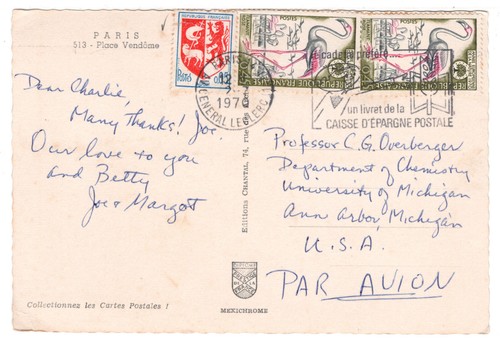 PARIS
513 - Place Vendôme
RÉPUBLIQUE FRANÇAISE
Postes
POSTES
RÉPUBLIQUE FRANÇAISE
POSTES
RÉPUBLIQUE FRANÇAISE
PARIS
1970
GENERAL LECLERC
un livret de la
CAISSE D'ÉPARGNE POSTALE
Dear Charlie,
Many Thanks! Joe.
Our love to you
and Betty
Joe & Margot
Editions CHANTAL, 74, rue des
Professor C.G. Overberger
Department of Chemistry
University of Michigan
Ann Arbor, Michigan
U.S.A.
PAR AVION
Collectionnez les Cartes Postales !
MEXICHROME